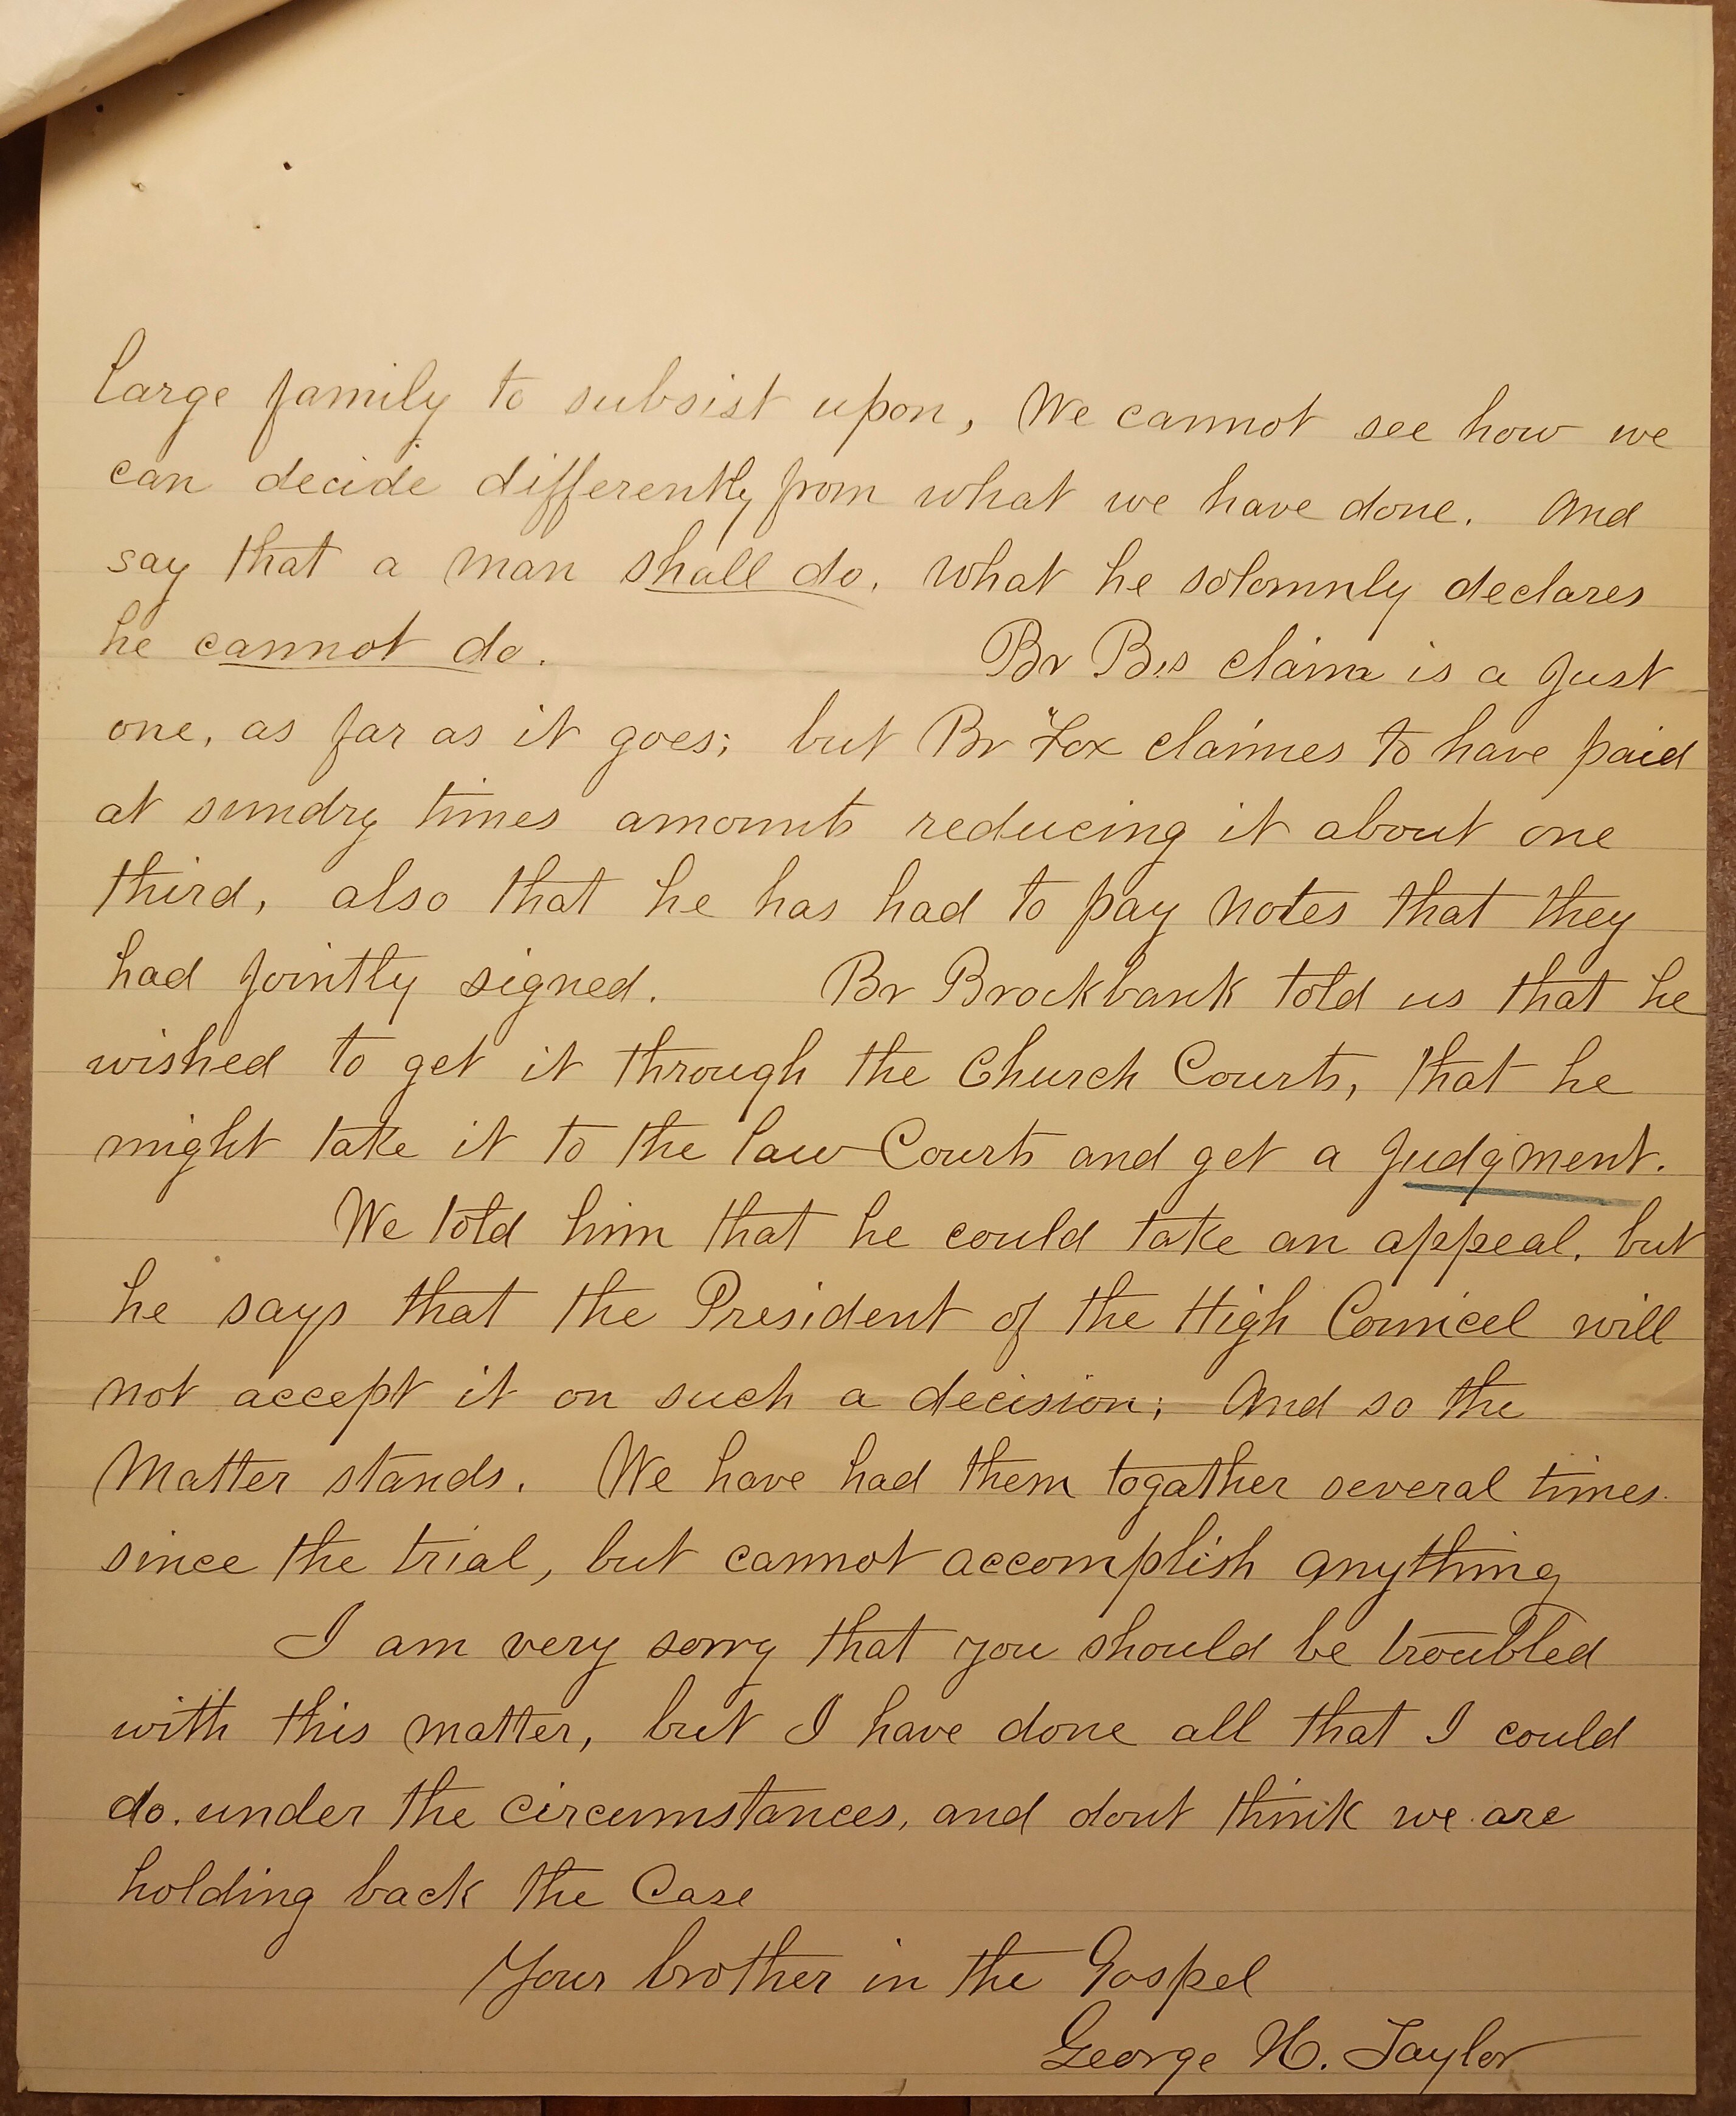 large family to subsist upon, We cannot see how we
can decide differently from what we have done. And
say that a man shall do. what he solomnly declares
he cannot do. Br B.s claim is a just
one, as far as it goes; but Br "Fox claimes to have paid
at sundry times amounts reducing it about one
third, also that he has had to pay notes that they
had jointly signed. Br Brockbank told us that he
wished to get it through the Church Courts, that he
might take it to the law Courts and get a judgment.
We told him that he could take an appeal, but
he says that the President of the High Councel will
not accept it on such a decision; And so the
Matter stands. We have had them togather several times
since the trial, but cannot accomplish anything
I am very sorry that you should be troubled
with this matter, but I have done all that I could
do. under the circumstances, and dont think we are
holding back the Case
Your brother in the Gospel
George H. Taylor